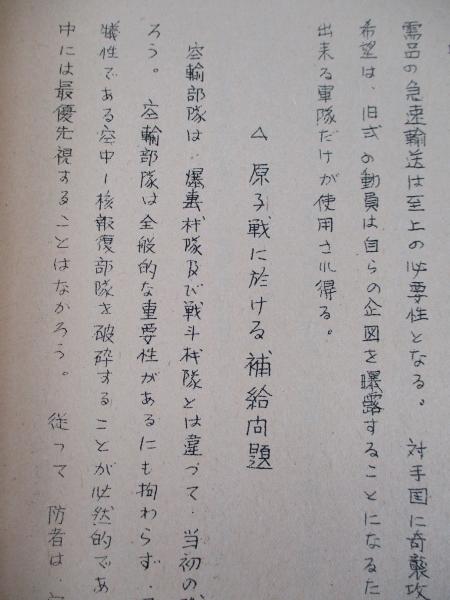 需品の急速輸送は至上の必要性となる。 対手国に奇襲攻
希望は、旧式の動員は自らの企図を曝露することになるた
出来る軍隊だけが使用され得る。
△ 原子戦に於ける補給问題
空輸部隊は、爆撃機隊及び戦斗機隊とは違って、当初の
ろう。 空輸部隊は全般的な重要性があるにも拘わらず、
犠牲である空中ー核報復部隊を破砕することが必然的であ
中には最優先視することはなかろう。 従って 防者は、